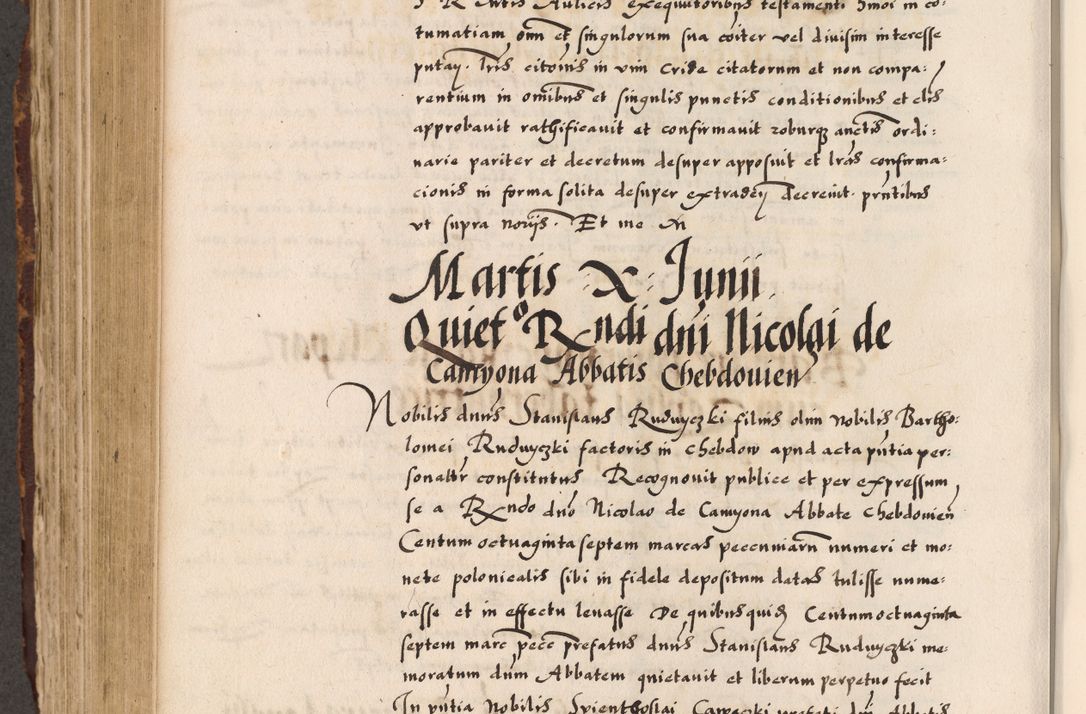 Artis Aulicis exequitoribus testamenti Imoi in co:
tumatiam om̄ et singulorum sua cōiter vel diuisim interesse
putan̄. Tris citōnis in vim Cride citatorum et non compa:
rentium in omībus et singulis punctis conditionibus et clīs
approbauit rathificauit et confirmauit roburqꝫ auctīs ordi:
narie pariter et decretum desuper apposuit et lrās confirma:
cionis in forma solita desuper extraden̄ decreuit. pn̄tibus
vt supra norijs. Et me
Martis X Junii
Quietᵒ Rndi dni Nicolai de
Camyona Abbatis Chebdouien
Nobilis dnus Stanislaus Ruduyczki filius olim nobilis Bartho:
lomei Ruduyczki factoris in Chebdow apud acta pn̄tia per:
sonalr̄ constitutus Recognouit publice et per expressum
se a Rndo dno Nicolao de Camyona Abbate Chebdouien̄
Centum octuaginta septem marcas peccuniarū numeri et mo:
nete polonicalis sibi in fidele depositum datas tulisse nume:
rasse et in effectu leuasse De quibusquidꝫ Centum octuaginta
septem marc̄ pecc̄ prefatus dnus Stanislaus Ruduyczki me:
moratum dnm̄ Abbatem quietauit et liberum perpetuo fecit
In pn̄tia Nobilis Swienthoslai prefati dni Abbatis